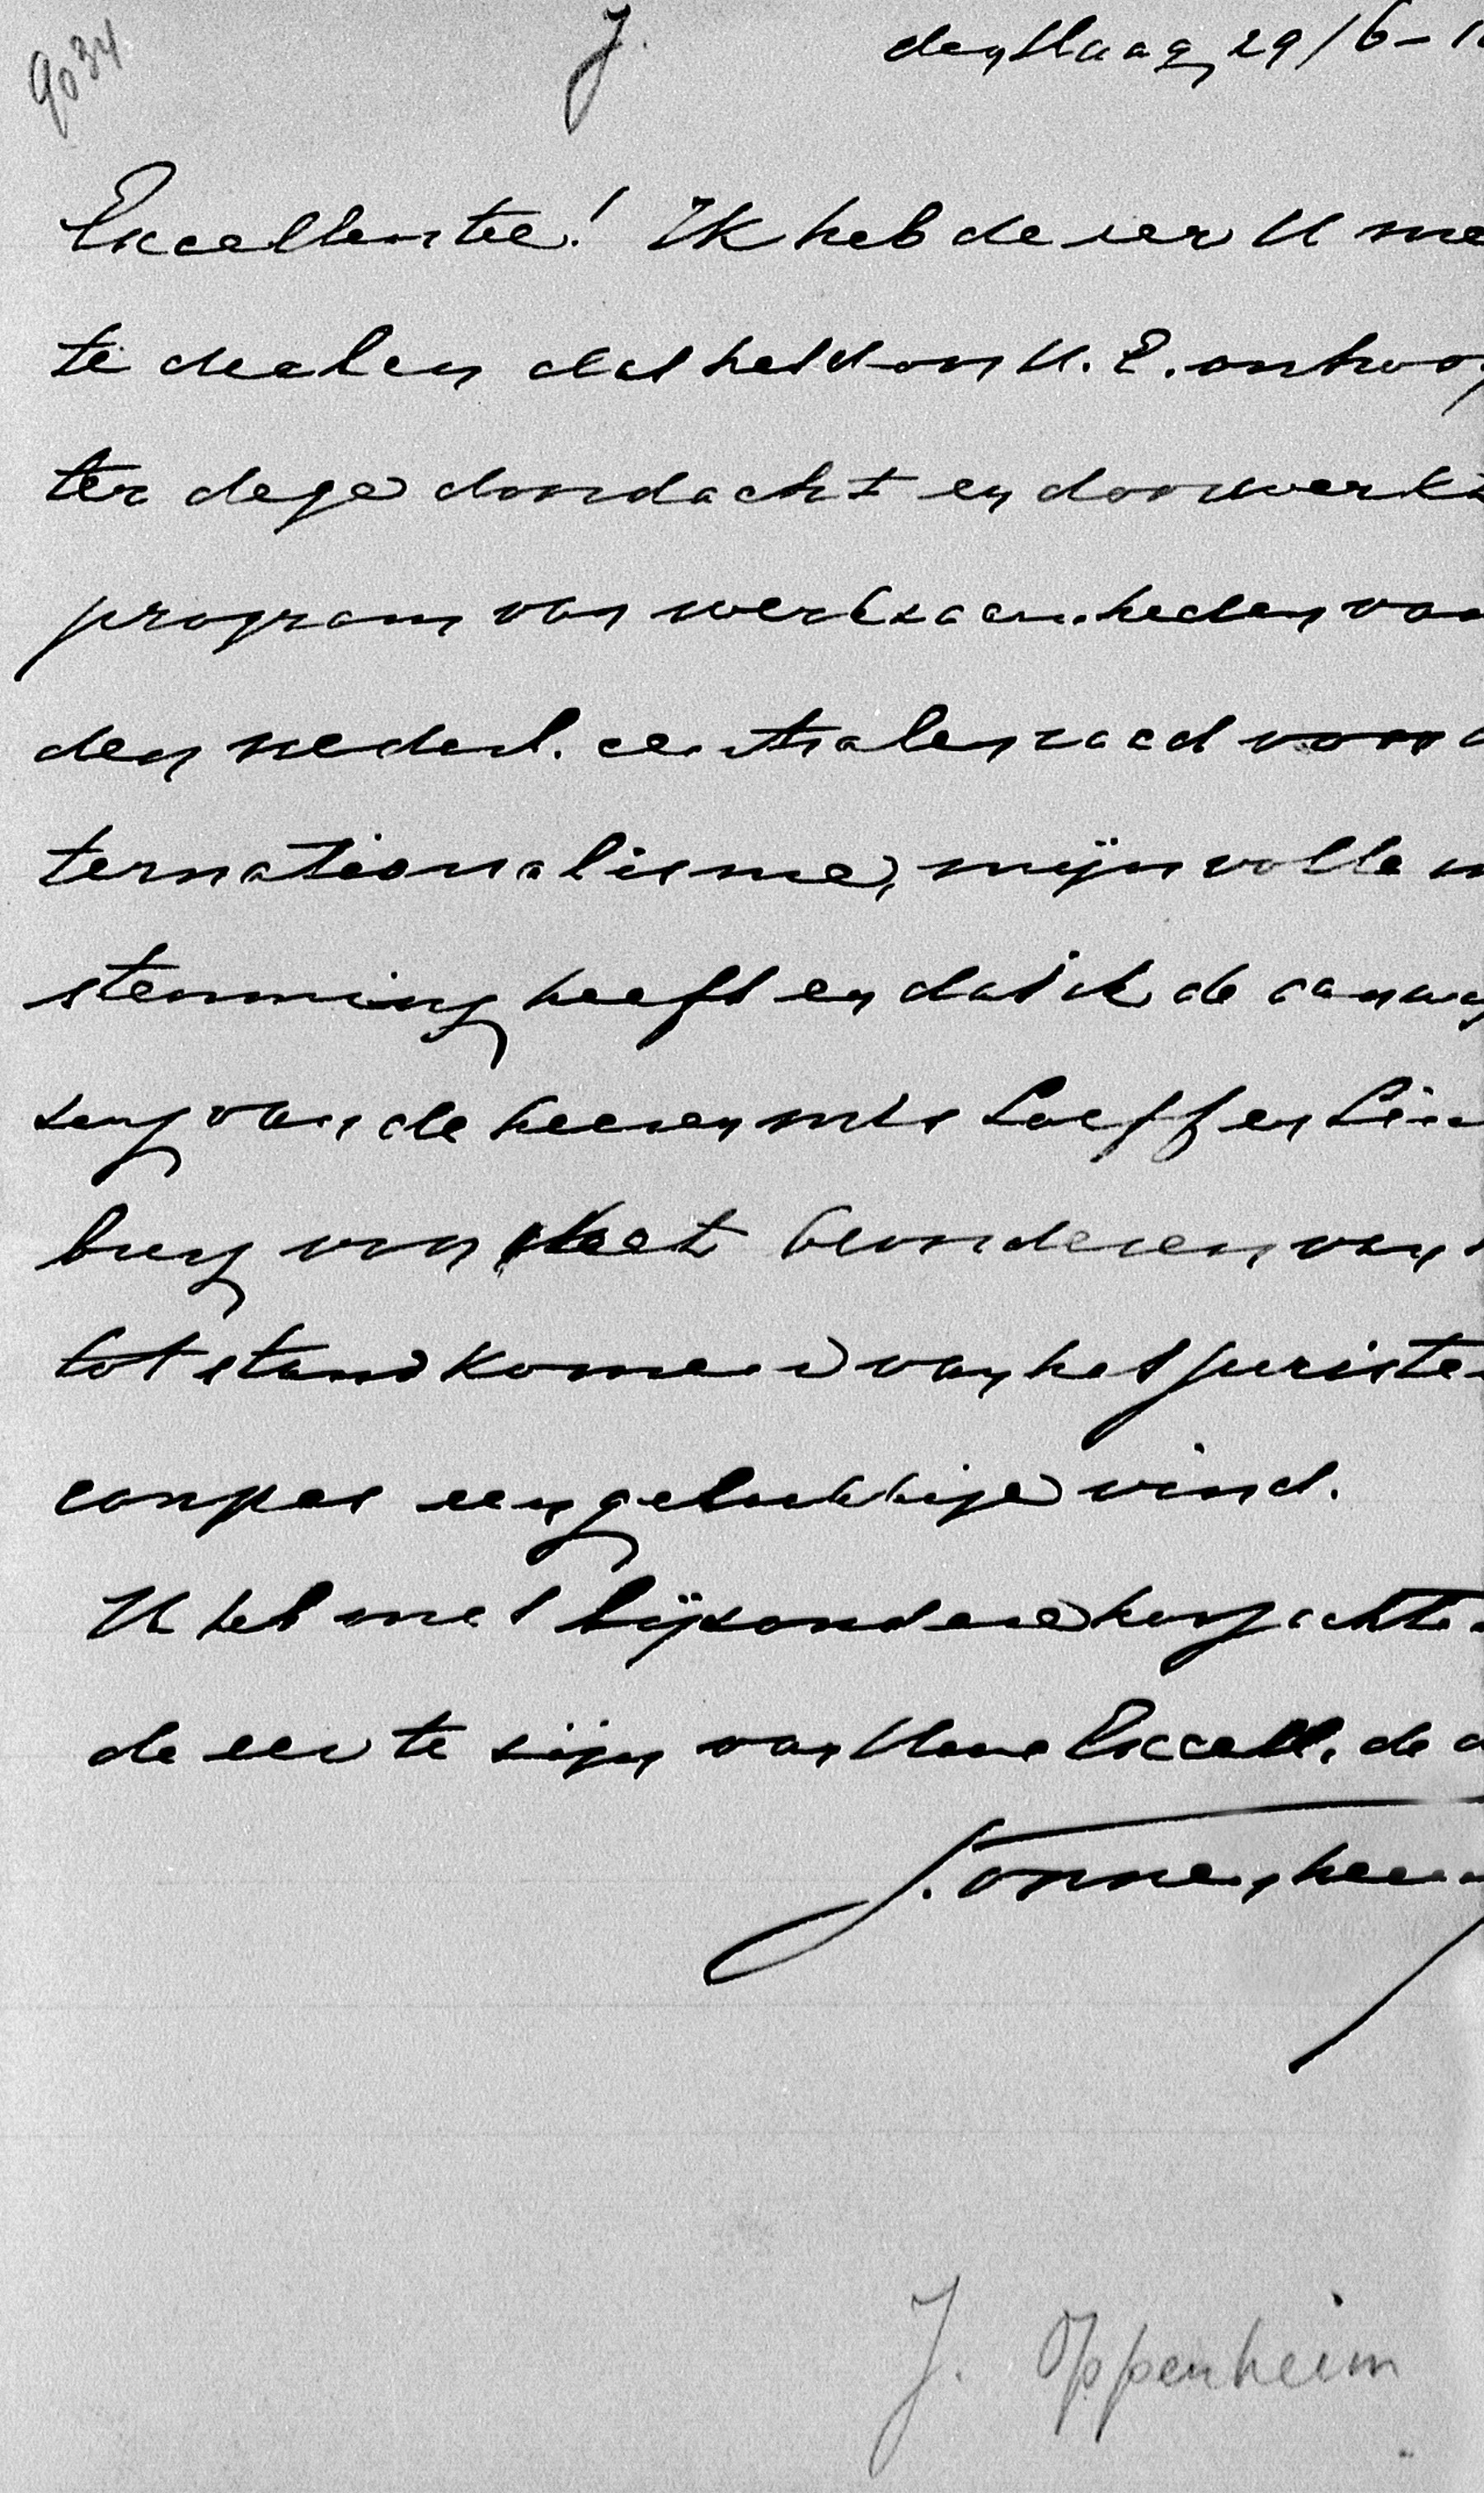 9034
J.
den Haag, 29/6-1
Excellentie! Ik heb de eer U me
te deelen dat het door U.E. ontwor
ter dege doordacht en doorwerkt
program van werkzaamheden van
den nederl. centralen raad voor
ternationalisme, mijn volle
stemming heeft en dat ik de aanwij
zing van de heeren mrs Loeff en Lim
burg voor het bevorderen van
tot stand komen van het juristen
congres een gelukkige vind.
Ik heb met bijzondere hoogachte
de eer te zijn van Uwe Excell. de d
J. Oppenheim
J. Oppenheim